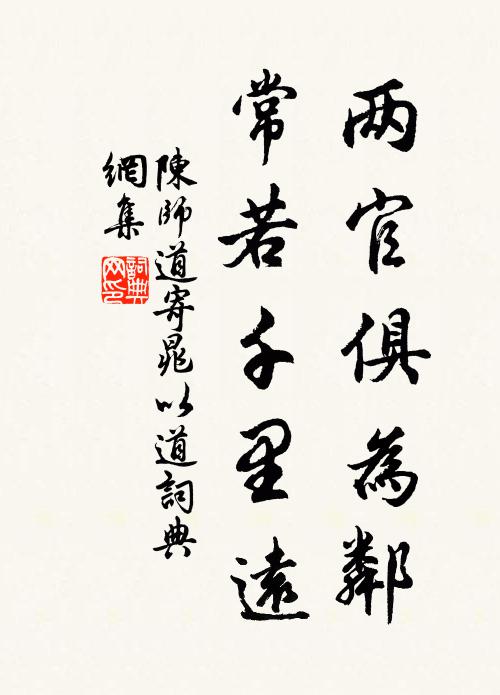 两官俱為鄰
常若千里遠
陳師道寄晁以道詞典
網集
詞典
网印